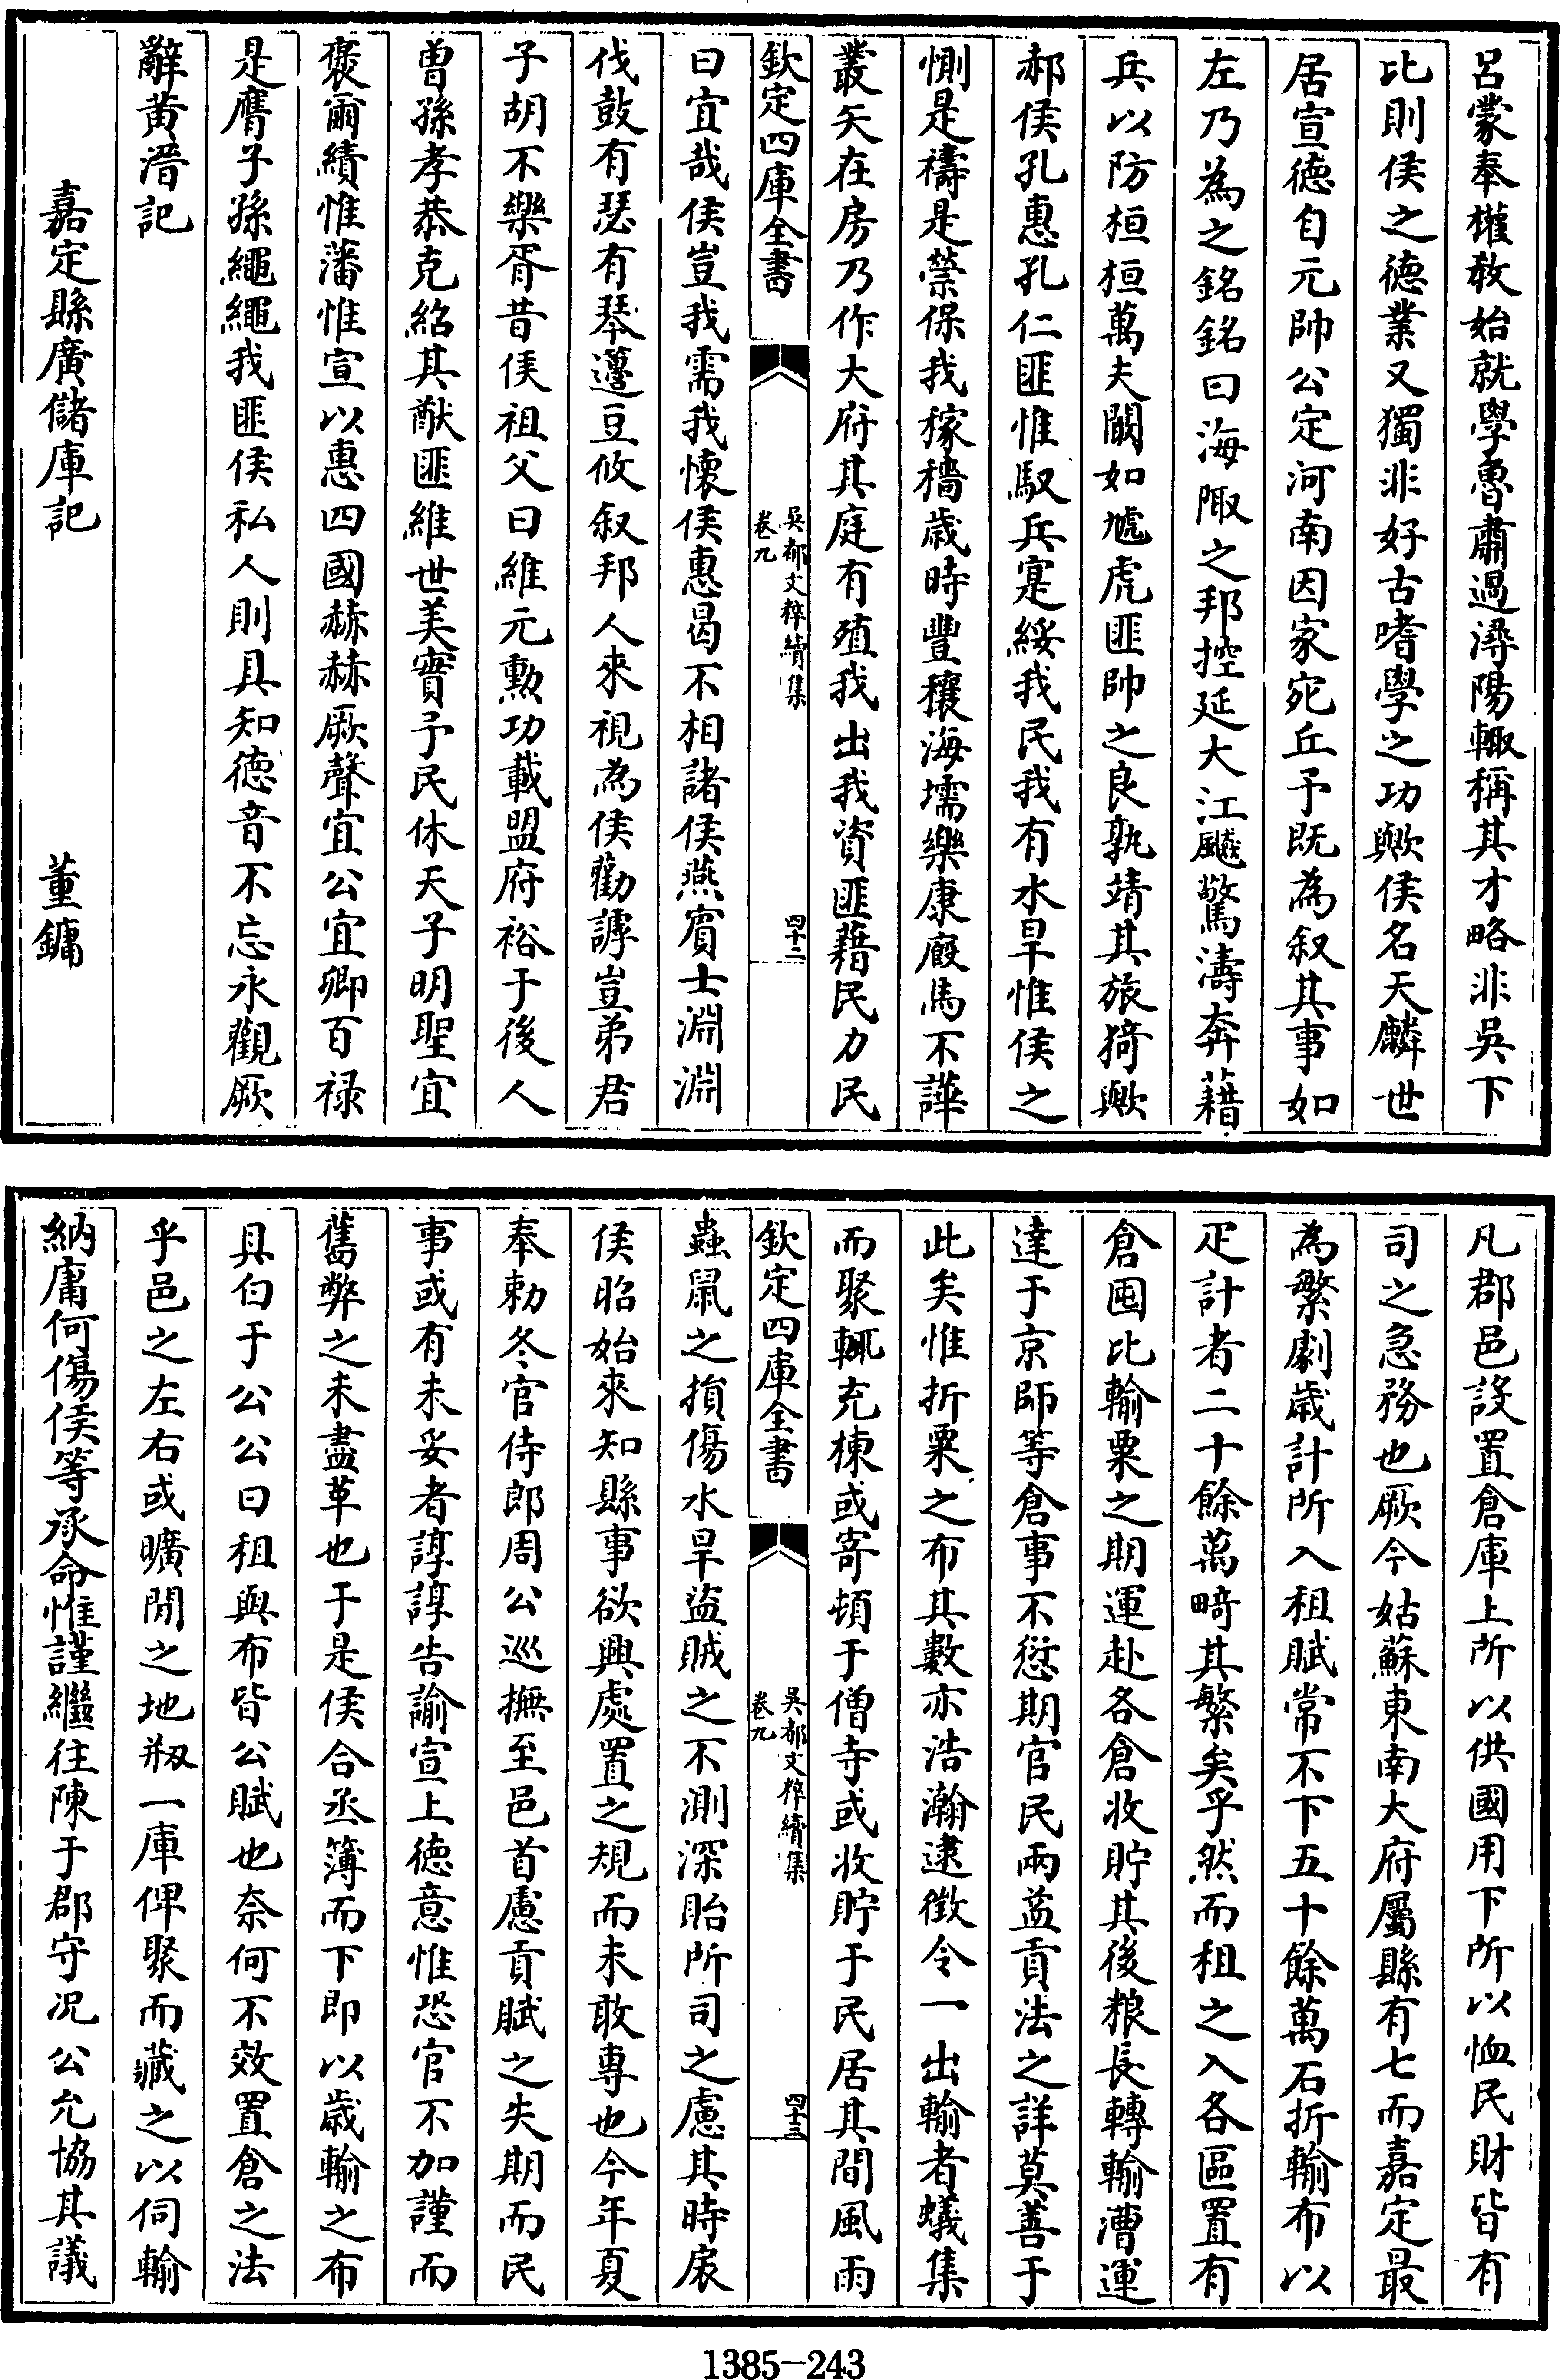 呂蒙奉權教始就學魯肅過潯陽輙稱其才略非吳下
比則侯之徳業又獨非好古嗜學之功歟侯名天麟世
居宣徳自元帥公定河南因家宛丘予既為叙其事如
左乃為之銘銘曰海陬之邦控延大江颷驚濤奔藉
兵以防桓桓萬夫闞如虓虎匪帥之良孰靖其旅猗歟
郝侯孔惠孔仁匪惟馭兵寔綏我民我有水旱惟侯之
惻是禱是禜保我稼穡歳時豐穰海壖樂康廐馬不譁
叢矢在房乃作大府其庭有殖我出我資匪藉民力民
欽定四庫全書
吳都文粹續集
卷九
四十二
曰宜哉侯豈我需我懷侯惠曷不相諸侯燕賓士淵淵
伐鼓有瑟有琴籩豆攸叙邦人來視為侯勸謼豈弟君
子胡不樂胥昔侯祖父曰維元勲功載盟府裕于後人
曽孫孝恭克紹其猷匪維世美實予民休天子明聖宜
褒爾績惟藩惟宣以惠四國赫赫厥聲宜公宜卿百禄
是膺子孫繩繩我匪侯私人則具知徳音不忘永觀厥
辭黄溍記
嘉定縣廣儲庫記
董鏞
凡郡邑設置倉庫上所以供國用下所以恤民財皆有
司之急務也厥今姑蘇東南大府屬縣有七而嘉定最
為繁劇歳計所入租賦常不下五十餘萬石折輸布以
疋計者二十餘萬畸其繁矣乎然而租之入各區置有
倉囤比輸粟之期運赴各倉收貯其後粮長轉輸漕運
達于京師等倉事不愆期官民兩益貢法之詳莫善于
此矣惟折粟之布其數亦浩瀚逮徵令一出輸者蟻集
而聚輒充棟或寄頓于僧寺或收貯于民居其間風雨
欽定四庫全書
吳都文粹續集
卷九
四十三
蟲鼠之損傷水旱盜賊之不測深貽所司之慮其時扆
侯昭始來知縣事欲興處置之規而未敢專也今年夏
奉勅冬官侍郎周公巡撫至邑首慮貢賦之失期而民
事或有未妥者諄諄告諭宣上徳意惟恐官不加謹而
舊弊之未盡革也于是侯合丞簿而下即以歳輸之布
具白于公公曰租與布皆公賦也奈何不效置倉之法
乎邑之左右或曠閒之地剏一庫俾聚而藏之以伺輸
納庸何傷侯等承命惟謹繼往陳于郡守况公允協其議
1385-243